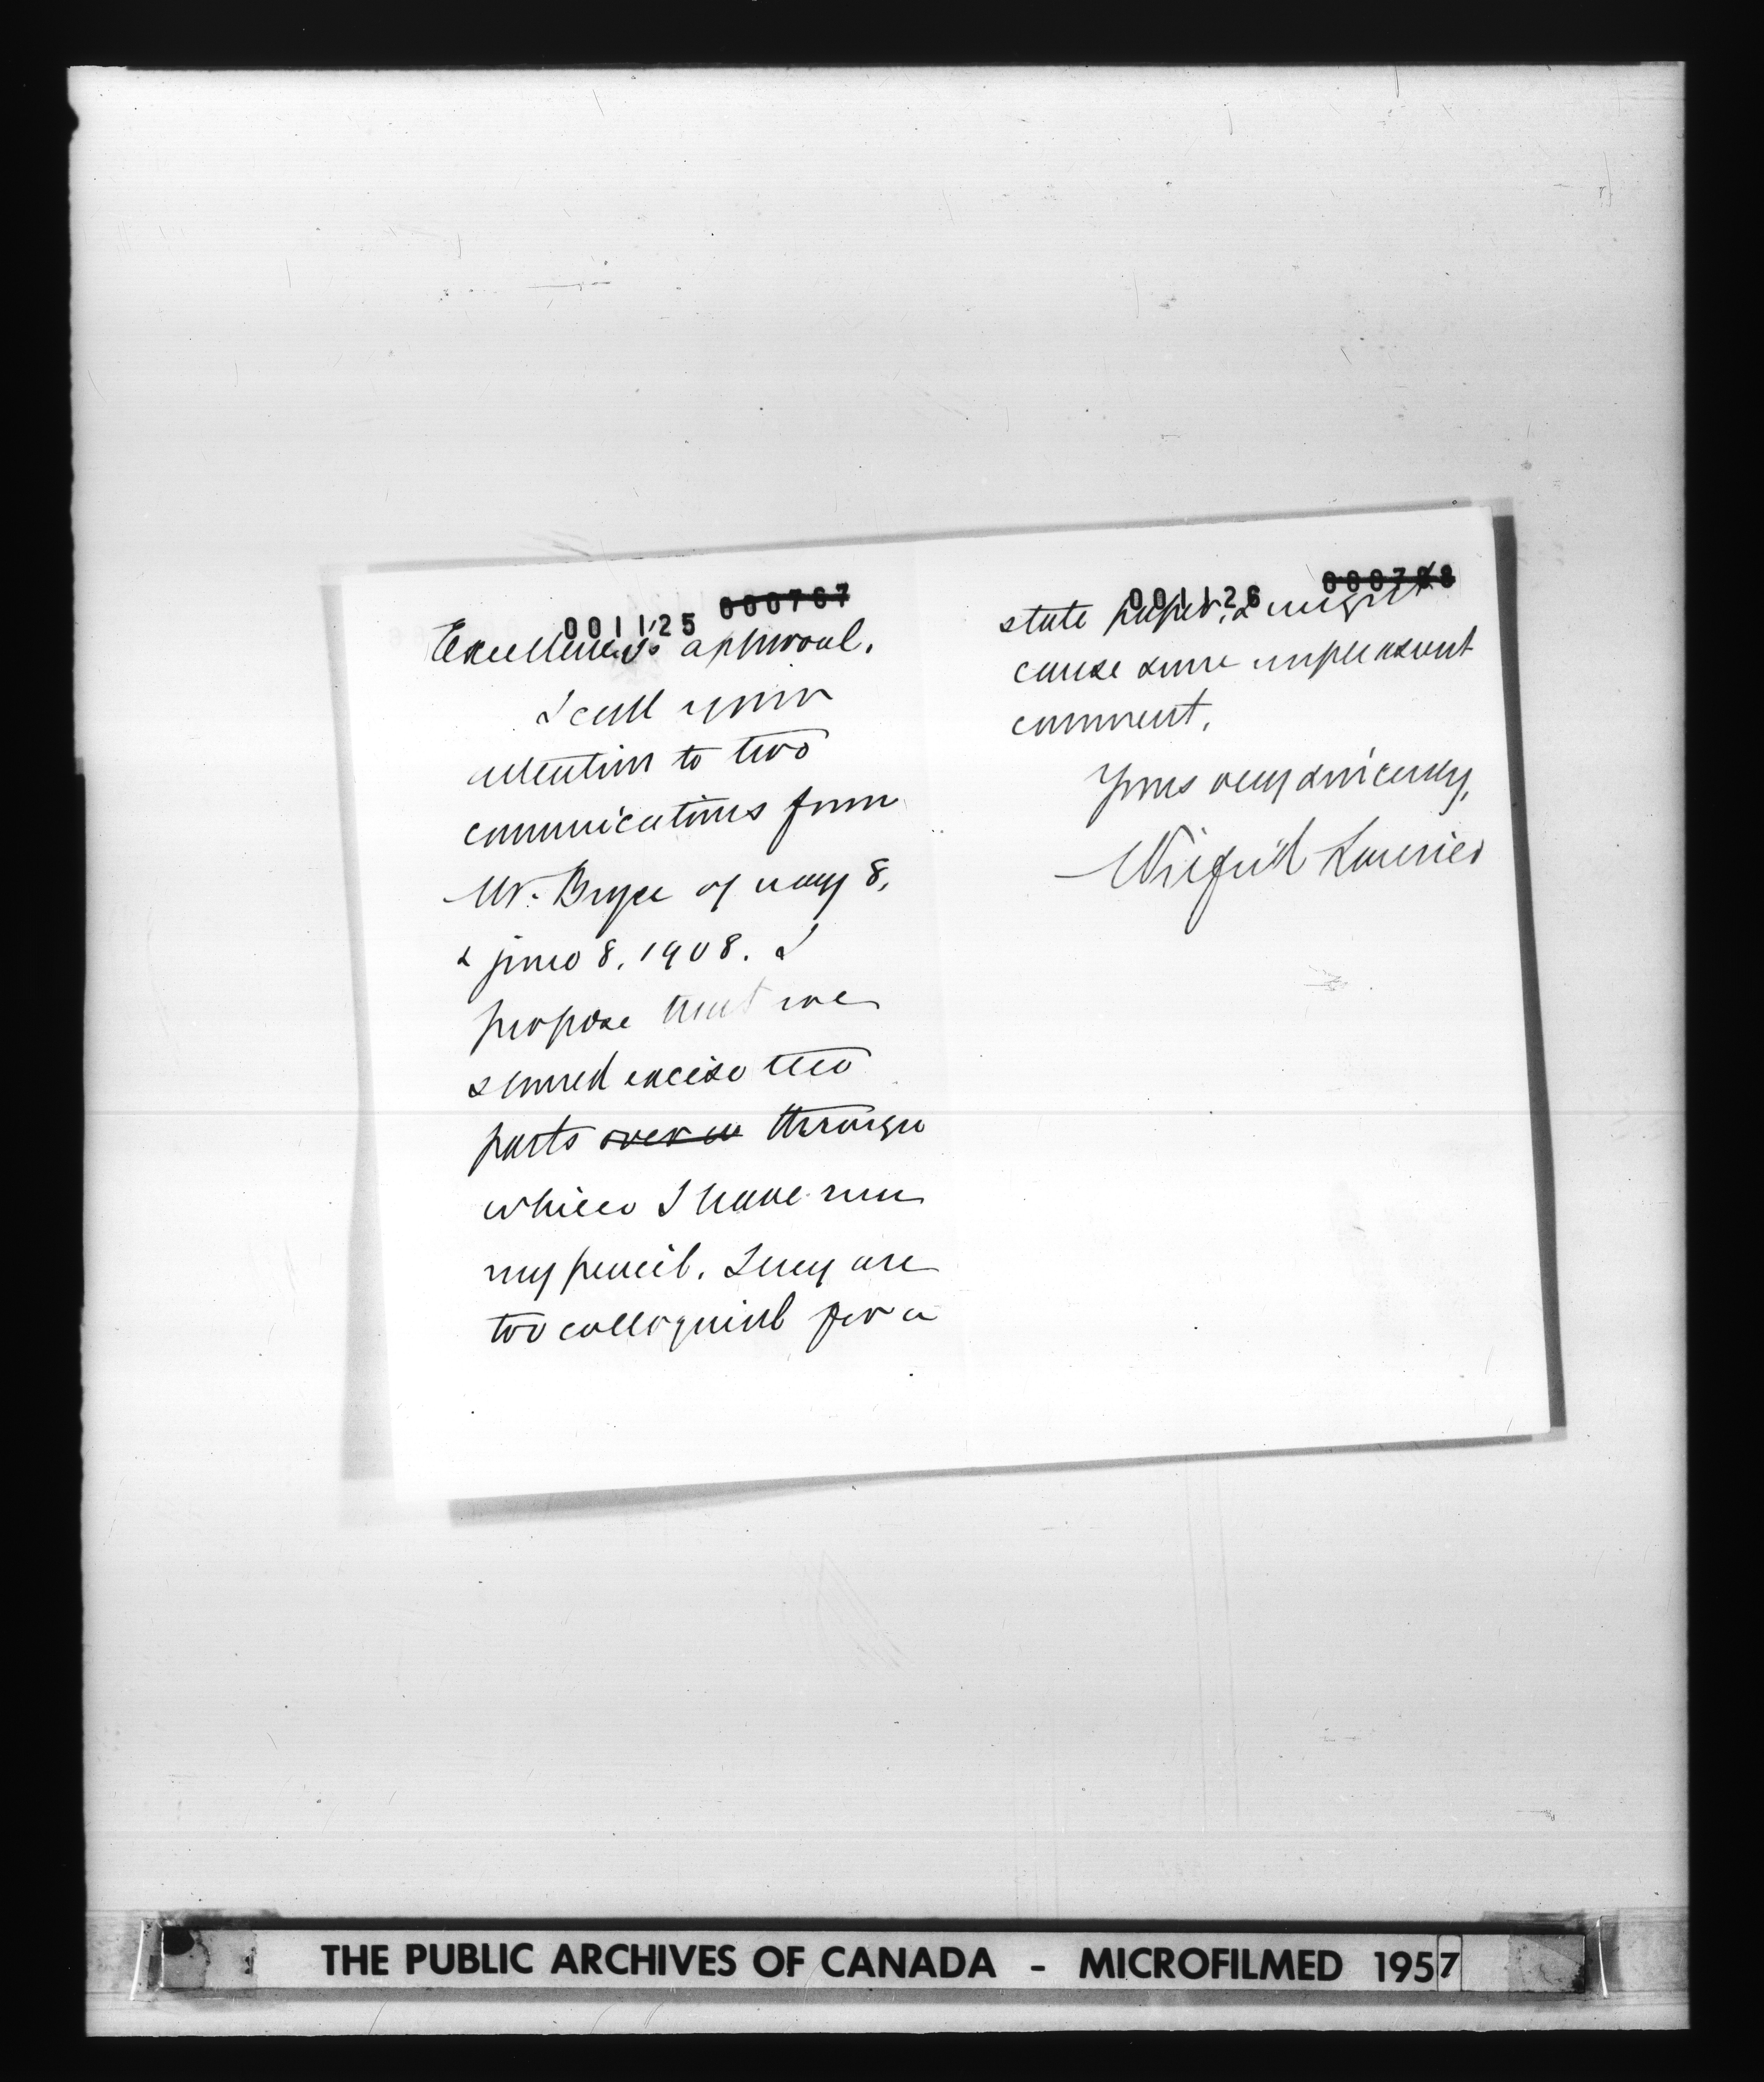 001125 000767
Excellency's approval.
I call your
attention to two
communications from
Mr. Bryce of may 8,
& june 8, 1908. I
propose that we
should excise two
parts over w through
which I have run
my pencil. They are
too colloquial for a
001126 000768
state paper, & might
cause some unpleasant
comment.
Yours very sincerely,
Wilfrid Laurier
THE PUBLIC ARCHIVES OF CANADA - MICROFILMED 1957